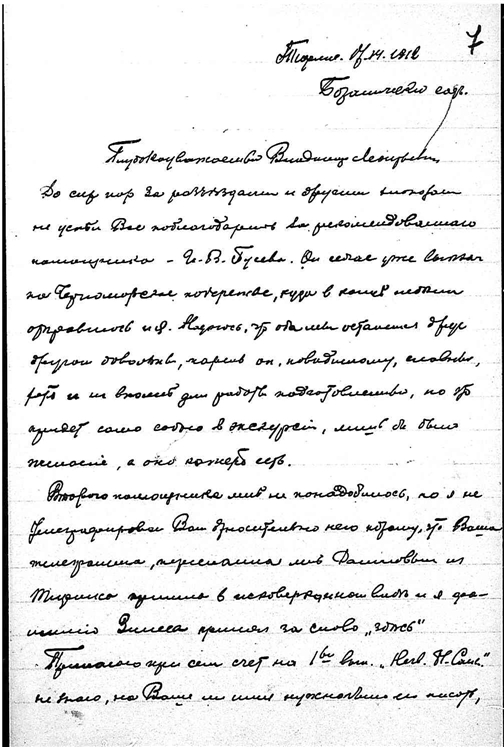 7
14. 1912
Ботанический садъ.
Глубокоуважаемый Владимир Леонтьевич
До сих пор за разъездами и другими
не успел Вас поблагодарить за рекомендованного
помощника – Б. Гусева. Он сейчас уже выехал
на Черноморское побережье, куда в конце недели
отправлюсь и я. Надеюсь, что оба мы останемся друг
другом довольны, парень он, повидимому, славный,
хотя и не вполне для работы подготовленный, но это
придет само собою в экскурсии, лишь бы было
желание, а оно кажется есть.
Второго помощника мне не понадобилось, но я не
телеграфировал Вам относительно него потому, что Ваша
телеграмма, пересланная мне из
Тифлиса пришла в исковерканном виде и я фа-
милию принял за слово „здесь“
Прилагаю при сем счет на 1ый вып.
не знаю, на Ваше ли имя нужно было его писать,